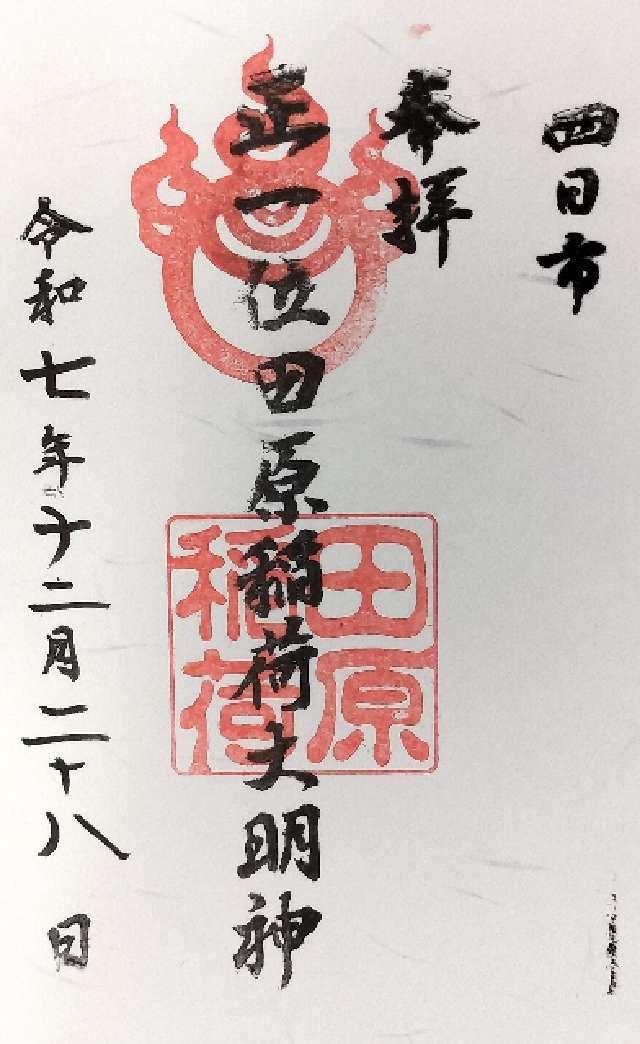 四日市
奉拝
正一位田原稲荷大明神
田原
稲荷
令和七年十二月二十八日